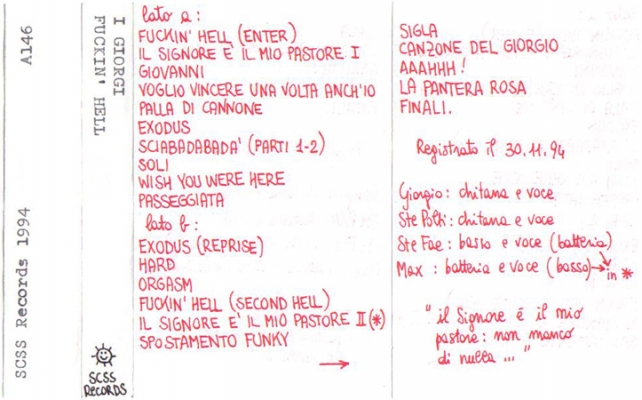 A146
SCSS Records 1994
I GIORGI
FUCKIN' HELL
SCSS
RECORDS
lato a:
FUCKIN' HELL (ENTER)
IL SIGNORE È IL MIO PASTORE I
GIOVANNI
VOGLIO VINCERE UNA VOLTA ANCH'IO
PALLA DI CANNONE
EXODUS
SCIABADABADA' (PARTI 1-2)
SOLI
WISH YOU WERE HERE
PASSEGGIATA
lato b:
EXODUS (REPRISE)
HARD
ORGASM
FUCKIN' HELL (SECOND HELL)
IL SIGNORE E' IL MIO PASTORE II (*)
SPOSTAMENTO FUNKY
→
SIGLA
CANZONE DEL GIORGIO
AAAHHH!
LA PANTERA ROSA
FINALI.
Registrato il 30.11.94
Giorgio: chitarra e voce
Ste Polti: chitarra e voce
Ste Fae: basso e voce (batteria)
Max: batteria e voce (basso) → in *
"il Signore é il mio
pastore: non manco
di nulla ..."